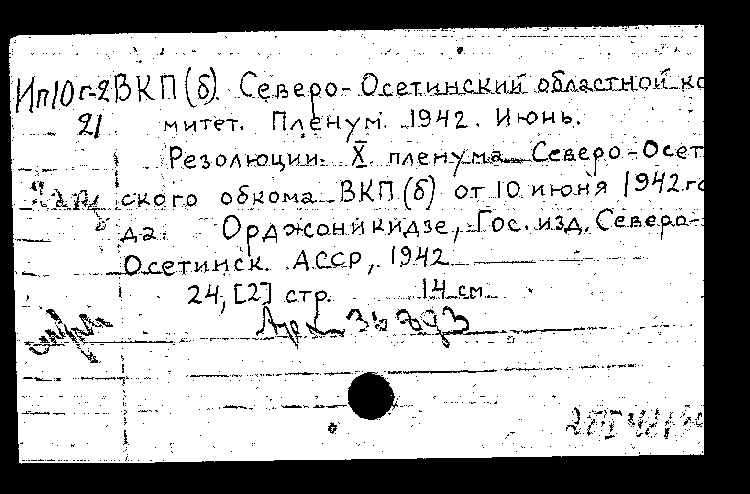 Ип10г-2 ВКП(б). Северо-Осетинский областной ко
21 митет. Пленум. 1942. Июнь.
Резолюции X пленума Северо-Осет
ского обкома ВКП(б) от 10 июня 1942 го
да. Орджоникидзе, Гос. изд. Северо-
Осетинск. АССР, 1942
24, [2] стр. 14 см.